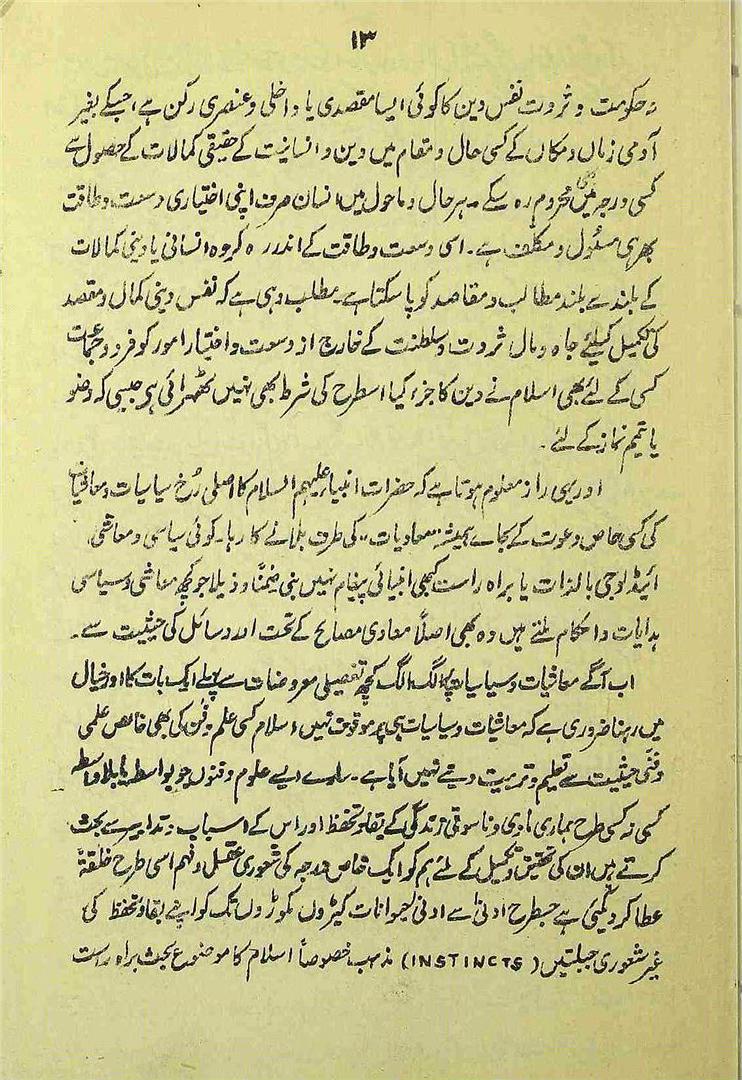 ۱۳
نہ حکومت و ثروت نفس دین کا کوئی ایسا مقصدی یا داخلی و عنصری رکن ہے، جسکے بغیر
آدمی زماں و مکاں کے کسی حال و مقام میں دین و انسانیت کے حقیقی کمالات کے حصول سے
کسی درجہ میں بھی محروم رہ سکے ۔ ہر حال و ماحول میں انسان صرف اپنی اختیاری وسعت و طاقت
بھر ہی مسئول و مکلف ہے ۔ اسی وسعت و طاقت کے اندر رہ کر وہ انسانی یا دینی کمالات
کے بلند سے بلند مطالب و مقاصد کو پا سکتا ہے ۔ مطلب وہی ہے کہ نفس دینی کمال و مقصد
کی تکمیل کیلئے جاہ و مال ثروت و سلطنت کے خارج از وسعت و اختیار امور کو فرد و جماعت
کسی کے لئے بھی اسلام نے دین کا جزء کیا اسطرح کی شرط بھی نہیں ٹھہرائی ہر جیسی کہ وضو
یا تیمم نماز کے لئے ۔
اور یہی راز معلوم ہوتا ہے کہ حضرات انبیاء علیہم السلام کا اصلی رُخ سیاسیات و معاشیات
کی کسی خاص دعوت کے بجاے ہمیشہ "معادیات" کی طرف بلانے کا رہا ۔ کوئی سیاسی و معاشی
ائیڈلوجی بالذات یا براہ راست کبھی انبیائی پیغام نہیں بنی ضمنًا و ذیلًا جو کچھ معاشی و سیاسی
ہدایات و احکام ملتے ہیں وہ بھی اصلًا معادی مصالح کے تحت اور وسائل کی حیثیت سے ۔
اب آگے معاشیات و سیاسیات پر الگ الگ کچھ تفصیلی معروضات سے پہلے ایک بات کا اور خیال
میں رہنا ضروری ہے کہ معاشیات و سیاسیات ہی پر موقوف نہیں، اسلام کسی علم و فن کی بھی خالص علمی
و فنّی حیثیت سے تعلیم و تربیت دینے نہیں آیا ہے ۔ سارے ایسے علوم و فنوں جو بواسطہ یا بلاواسطہ
کسی نہ کسی طرح ہماری مادی و ناسوتی زندگی کے بقا و تحفظ اور اس کے اسباب و تدابیر سے بحث
کرتے ہیں ان کی تحقیق و تکمیل کے لئے ہم کو ایک خاص درجہ کی شعوری عقل و فہم اسی طرح خلقۃً
عطا کر دیگئی ہے جسطرح ادنیٰ سے ادنیٰ حیوانات کیڑوں مکوڑوں تک کو اپنے بقا و تحفظ کی
غیر شعوری جبلتیں (INSTINCTS) مذہب خصوصاً اسلام کا موضوع بحث براہ راست